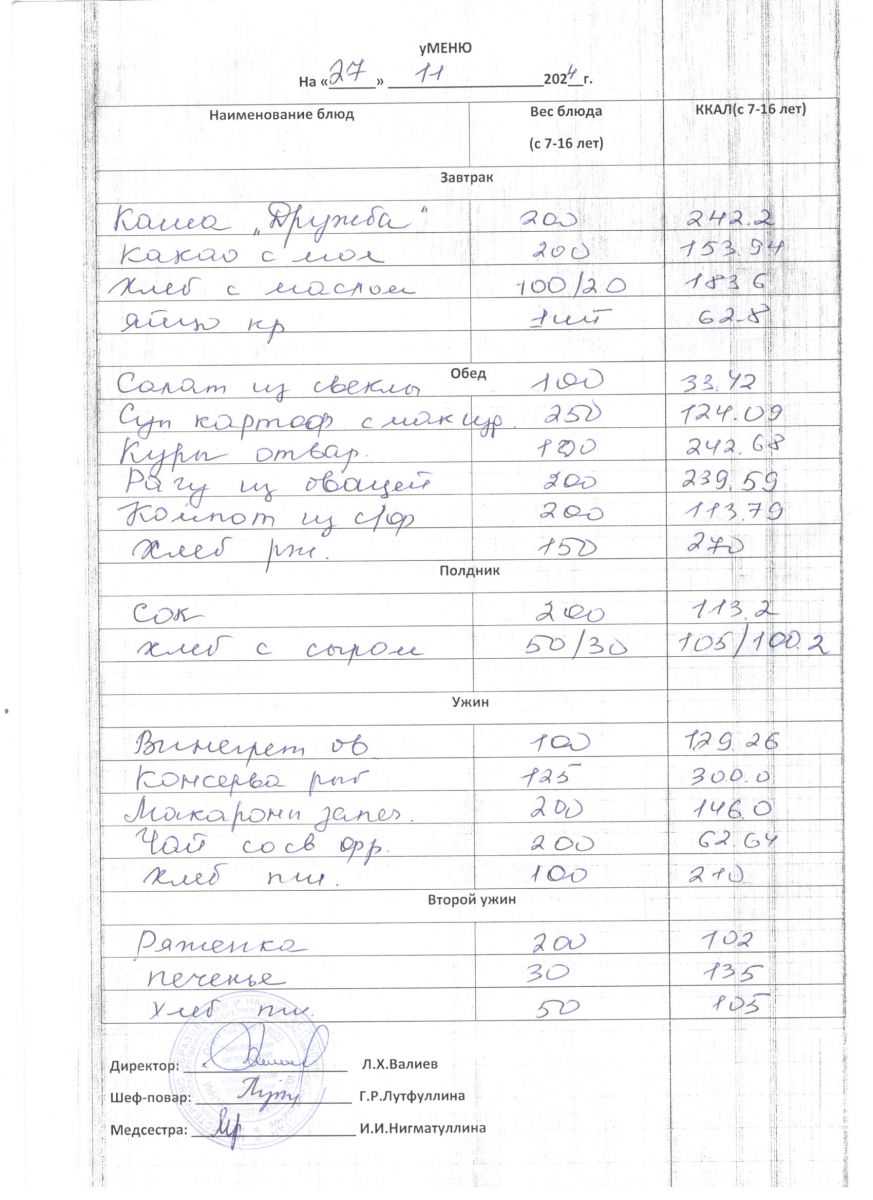 уМЕНЮ
На «27» 11 2024 г.
Наименование блюд Вес блюда (с 7-16 лет) ККАЛ(с 7-16 лет)
Завтрак
Каша „Дружба“ 200 242.2
Какао с мол 200 153.94
Хлеб с маслом 100/20 183 6
Яйцо кр 1шт 62.8
Обед
Салат из свеклы 100 33.42
Суп картоф с мак изд. 250 124.09
Куры отвар. 100 242.68
Рагу из овощей 200 239.59
Компот из с/ф 200 113.79
Хлеб рж. 150 270
Полдник
Сок 200 113.2
Хлеб с сыром 50/30 105/100.2
Ужин
Винегрет ов 100 129.26
Консерва рыб 125 300.0
Макароны запеч. 200 146.0
Чай со св фр. 200 62.64
Хлеб пш. 100 210
Второй ужин
Ряженка 200 102
печенье 30 135
Хлеб пш. 50 105
Директор: Л.Х.Валиев
Шеф-повар: Г.Р.Лутфуллина
Медсестра: И.И.Нигматуллина